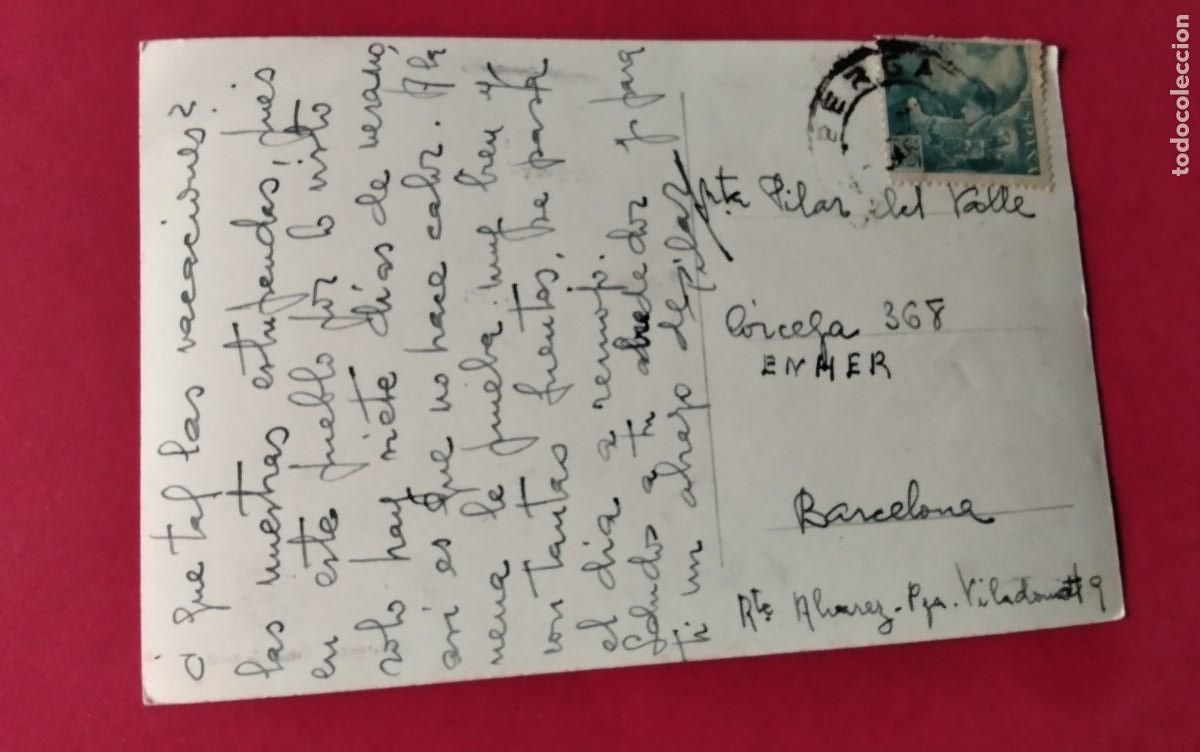 ¿que tal las vacaciones?
las nuestras estupendas, pues
en este pueblo por lo visto
solo hay siete dias de verano,
asi es que no hace calor. A la
nena le prueba muy bien y
con tantas fuentes, se pasa
el dia a remojo.
Saludos a tu alrededor y para
ti un abrazo de Pilar
BERGA
ESPAÑA
Srta Pilar del Valle
Córcega 368
ENHER
Barcelona
Rte Alvarez - Pza. Viladomat 9
todocoleccion